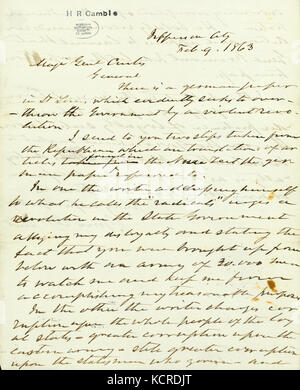 H R Gamble
Jefferson City
Feb. 9. 1863
Majr Genl Curtis
General
There is a german paper
in St Louis which evidently seeks to over-
throw the Government by a violent revo-
lution.
I send to you two slips taken from
the Republican which are translations of ar-
ticles in the Neue Zeit the ger-
man paper referred to.
In one the writer addressing himself
to what he calls the "radicals" urges a
revolution in the State Government
alleging my disloyalty and stating the
fact that you were brought up from
below with an army of 30.000 men
to watch me and keep me from
accomplishing my treasonable purposes
In the other the writer charges cor-
ruption upon the whole people of the loy-
al states – greater corruption upon the
and still greater corruption
upon the statesmen who govern and
alamy
KCRDJT